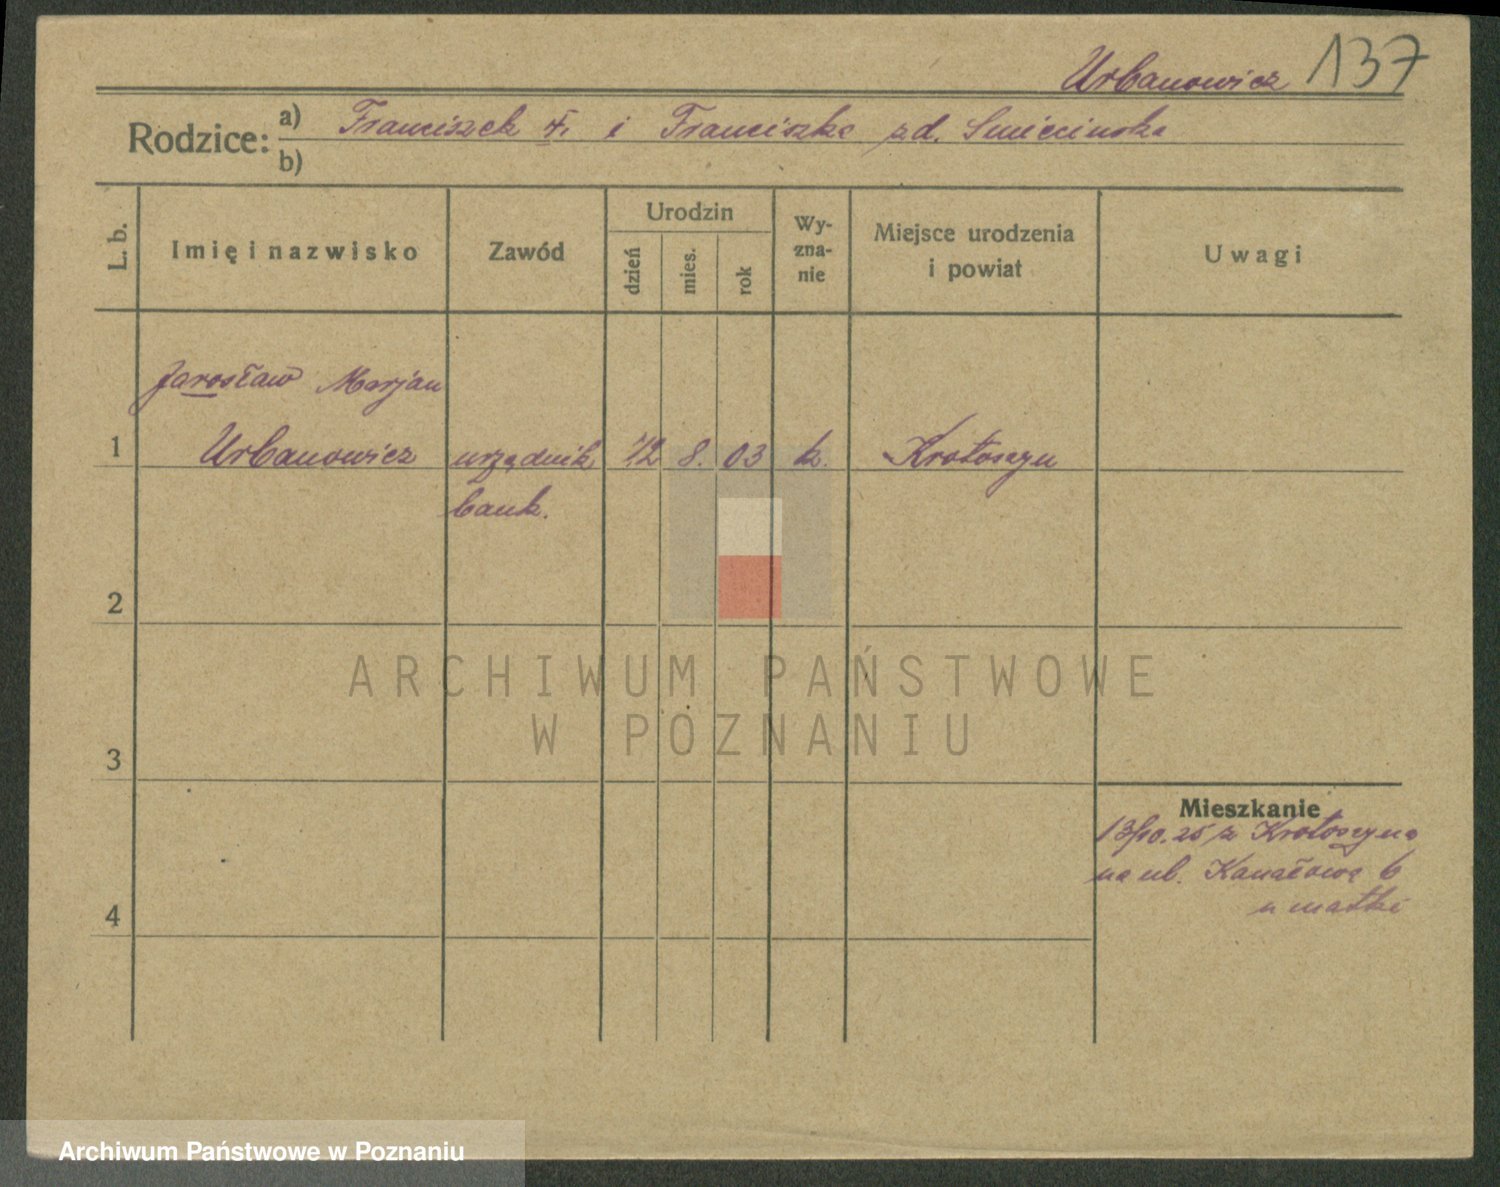 Urbanowicz 137
Rodzice: a) Franciszek i Franciszka zd. Smiecinska
b)
L. b. Imię i nazwisko Zawód Urodzin dzień mies. rok Wy-zna-nie Miejsce urodzenia i powiat Uwagi
Jarosław Marjan
1 Urbanowicz urzędnik 12 8. 03 k. Krotoszyn
bank.
2
ARCHIWUM PAŃSTWOWE
W POZNANIU
3
Mieszkanie
13/10. 25 z Krotoszyna
na ul. Kanałową 6
u matki
4
Archiwum Państwowe w Poznaniu